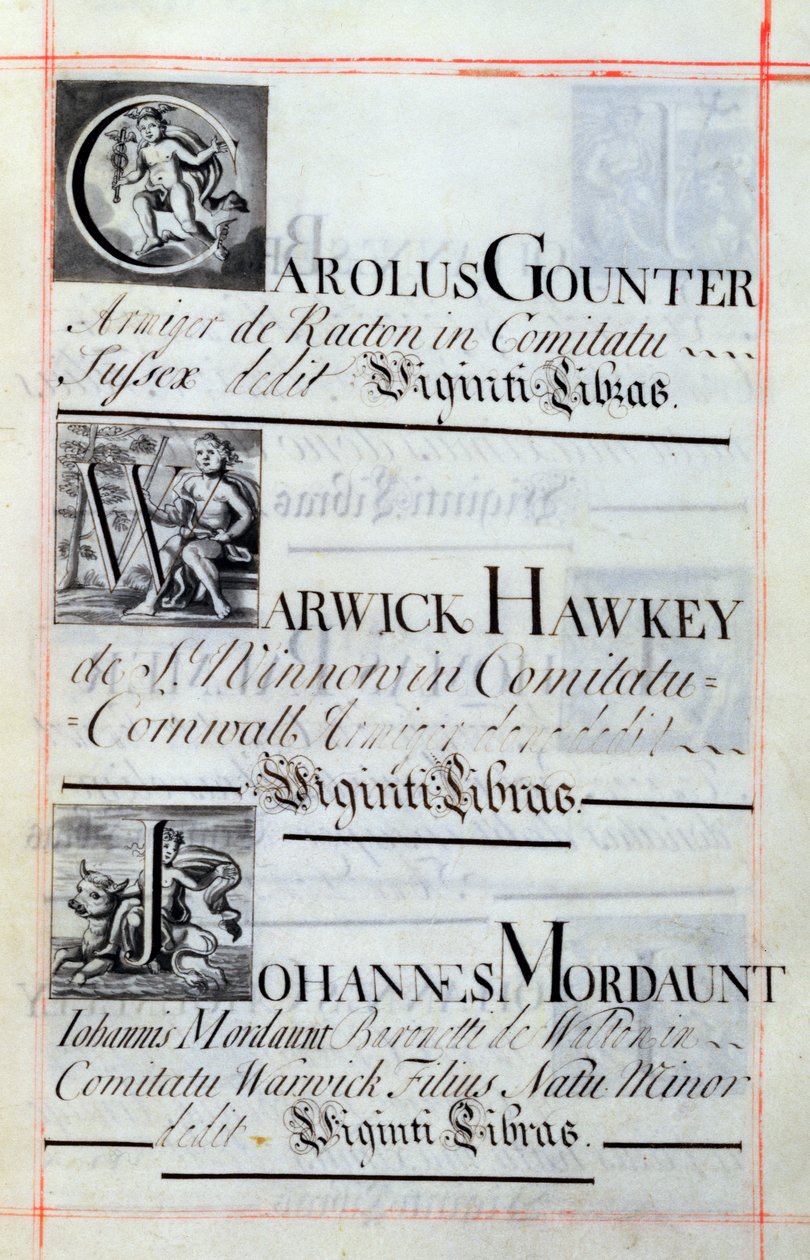 CAROLUS GOUNTER
Armiger de Racton in Comitatu
Sussex dedit Viginti Libras.
WARWICK HAWKEY
de St. Winnow in Comitatu=
=Cornwall Armiger dono dedit
Viginti Libras.
JOHANNES MORDAUNT
Iohannis Mordaunt Baronetti de Walton in
Comitatu Warwick Filius Natu Minor
dedit Viginti Libras.